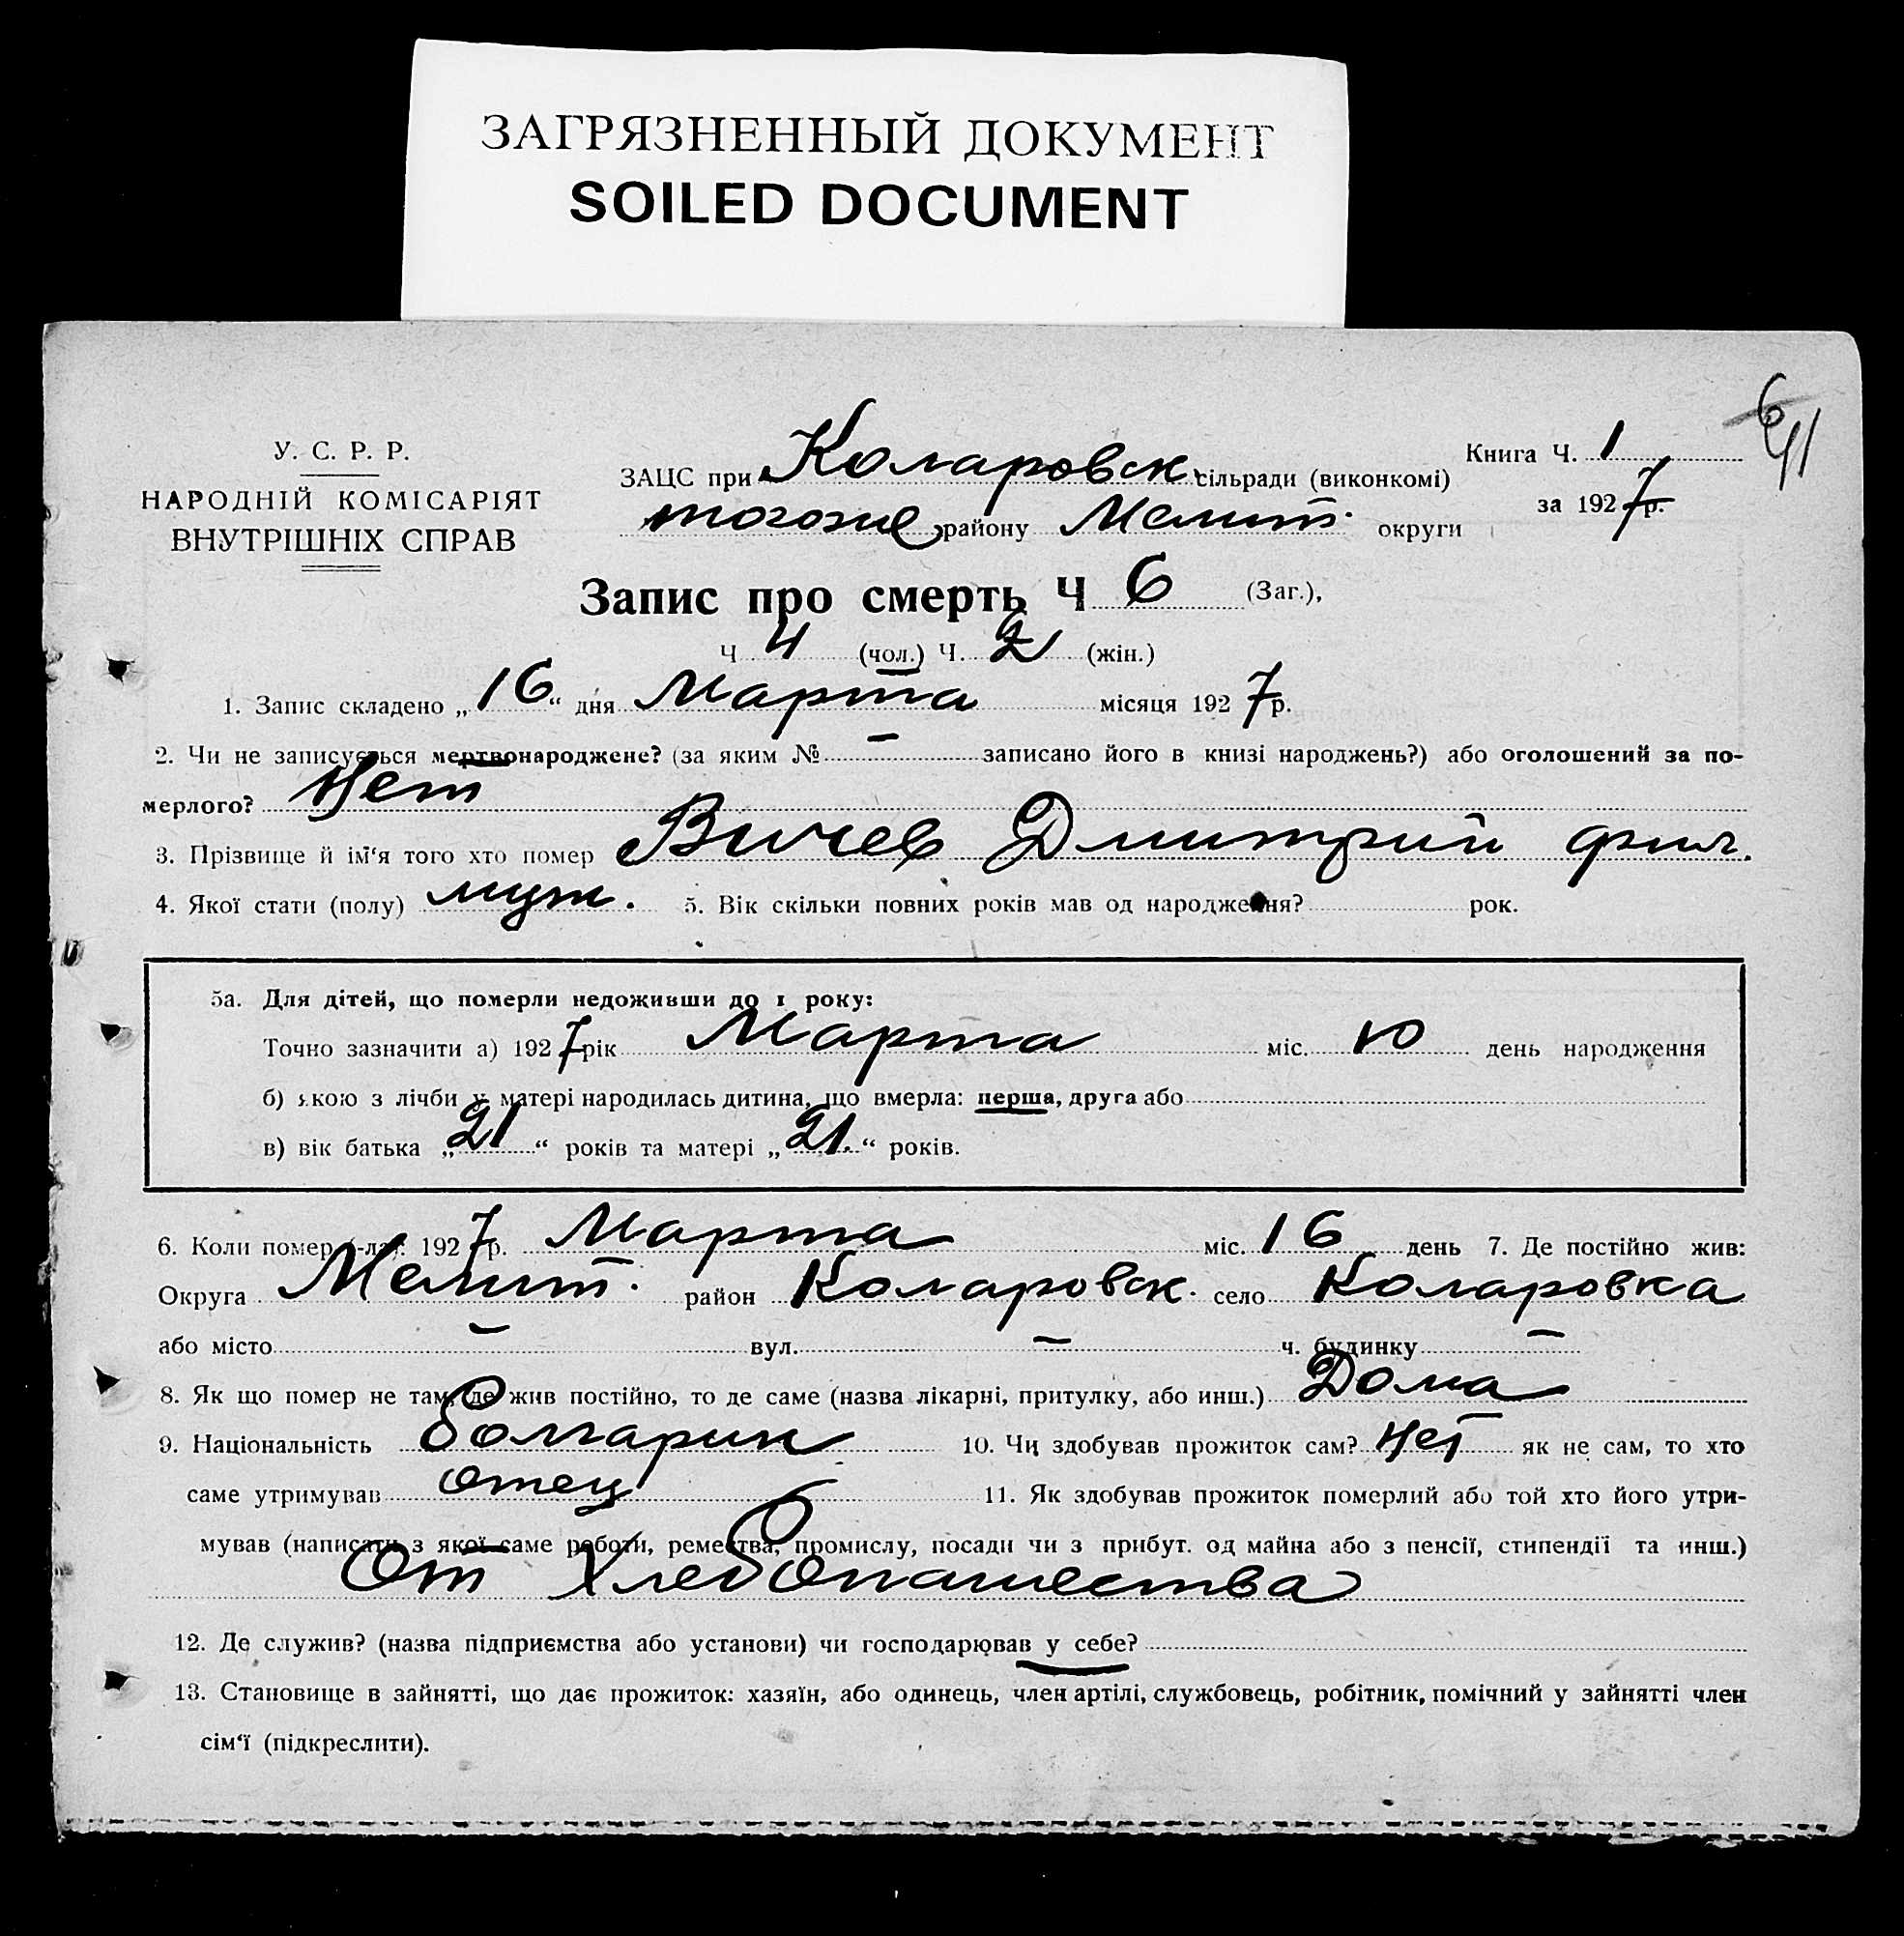 ЗАГРЯЗНЕННЫЙ ДОКУМЕНТ
SOILED DOCUMENT
6
У. С. Р. Р.
НАРОДНІЙ КОМІСАРІЯТ
ВНУТРІШНІХ СПРАВ
ЗАЦС при Коларовск. сільради (виконкомі)
тогоже району Мелит. округи
Книга Ч. 1
за 1927 р.
Запис про смерть Ч 6 (Заг.),
Ч 4 (чол.) Ч. 2 (жін.)
1. Запис складено „16“ дня Марта місяця 1927 р.
2. Чи не записується мертвонароджене? (за яким № – записано його в книзі народжень?) або оголошений за по-
мерлого? Нет
3. Прізвище й ім‘я того хто помер Вичев Дмитрий фил.
4. Якої стати (полу) муж. 5. Вік скільки повних років мав од народження? рок.
5а. Для дітей, що померли недоживши до 1 року:
Точно зазначити а) 1927 рік Марта міс. 10 день народження
б) якою з лічби у матері народилась дитина, що вмерла: перша, друга або
в) вік батька „21“ років та матері „21.“ років.
6. Коли помер (-ла): 1927 р. Марта міс. 16 день 7. Де постійно жив:
Округа Мелит. район Коларовск. село Коларовка
або місто – вул. – ч. будинку –
8. Як що помер не там, де жив постійно, то де саме (назва лікарні, притулку, або инш.) Дома
9. Національність болгарин 10. Чи здобував прожиток сам? Нет як не сам, то хто
саме утримував отец 11. Як здобував прожиток померлий або той хто його утри-
мував (написати з якої саме роботи, ремества, промислу, посади чи з прибут. од майна або з пенсії, стипендії та инш.)
От Хлебопашества
12. Де служив? (назва підприємства або установи) чи господарював у себе?
13. Становище в зайнятті, що дає прожиток: хазяїн, або одинець, член артілі, службовець, робітник, помічний у зайнятті член
сім‘ї (підкреслити).